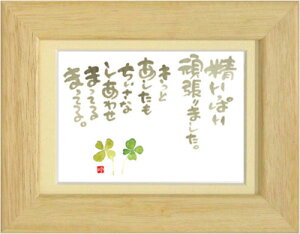 精いっぱい
頑張りました。
きっと
あしたも
ちいさな
しあわせ
まってる
まってる。